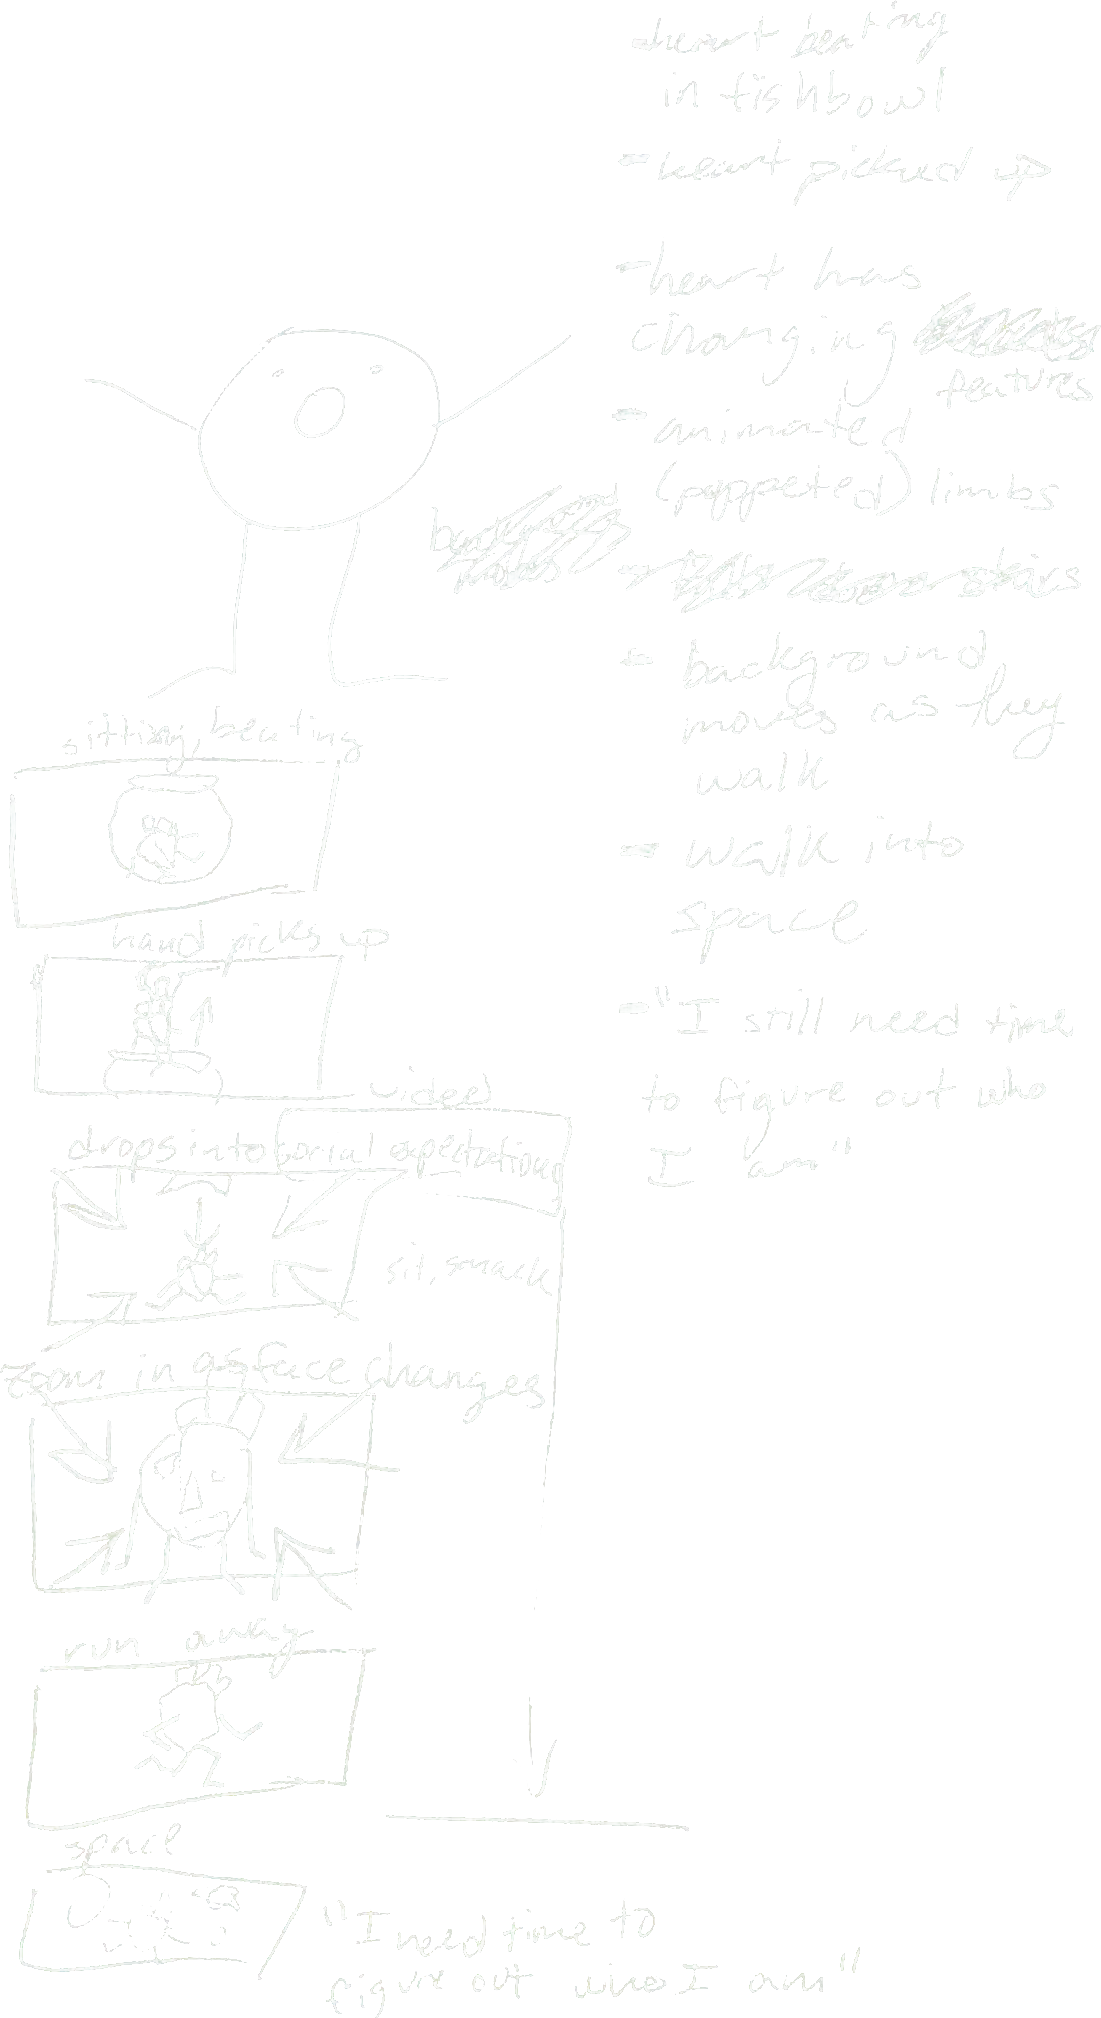 -heart beating
in fishbowl
-heart picked up
-heart has
changing
features
-animated
(puppeted) limbs
background
- background
moves as they
walk
- walk into
space
-"I still need time
to figure out who
I am"
sitting, beating
hand picks up
video
drops into social expectations
sit, smack
zoom in as face changes
run away
space
"I need time to
figure out who I am"